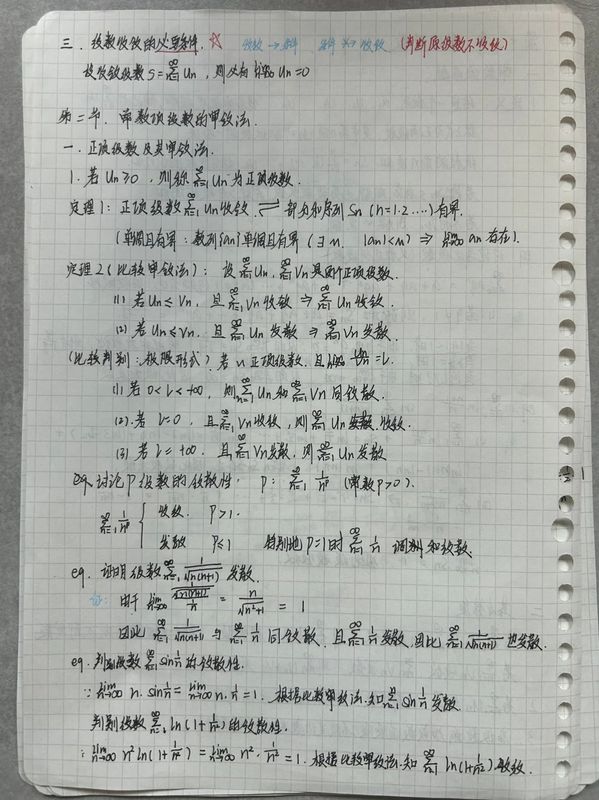 三. 级数收敛的必要条件. ☆ 收敛 → 条件 条件 ×→ 收敛 (判断原级数不收敛)
设收敛级数 S=∑_{n=1}^{∞} Un , 则必有 lim_{n→∞} Un=0
第二节. 常数项级数的审敛法.
一. 正项级数及其审敛法.
1. 若 Un≥0 , 则称 ∑_{n=1}^{∞} Un 为正项级数.
定理1: 正项级数 ∑_{n=1}^{∞} Un 收敛 ⇌ 部分和序列 Sn (n=1.2....) 有界.
(单调且有界: 数列{an}单调且有界 (∃M. |an|<M) ⇒ lim_{n→∞} an 存在).
定理2 (比较审敛法): 设 ∑_{n=1}^{∞} Un, ∑_{n=1}^{∞} Vn 是两个正项级数.
(1) 若 Un≤Vn, 且 ∑_{n=1}^{∞} Vn 收敛 ⇒ ∑_{n=1}^{∞} Un 收敛.
(2) 若 Un≤Vn. 且 ∑_{n=1}^{∞} Un 发散 ⇒ ∑_{n=1}^{∞} Vn 发散.
(比较判别: 极限形式) 若 正项级数, 且 lim_{n→∞} Un/Vn = l.
(1) 若 0<l<+∞, 则 ∑_{n=1}^{∞} Un 和 ∑_{n=1}^{∞} Vn 同敛散.
(2). 若 l=0, 且 ∑_{n=1}^{∞} Vn 收敛, 则 ∑_{n=1}^{∞} Un 收敛.
(3) 若 l=+∞. 且 ∑_{n=1}^{∞} Vn 发散, 则 ∑_{n=1}^{∞} Un 发散
eg. 讨论 P 级数的敛散性. P: ∑_{n=1}^{∞} 1/n^p (常数 p>0).
∑_{n=1}^{∞} 1/n^p { 收敛. P>1.
发散 P≤1 特别地 P=1时 ∑_{n=1}^{∞} 1/n 调和级数.
eg. 证明级数 ∑_{n=1}^{∞} 1/√(n(n+1)) 发散.
证: 由于 lim_{n→∞} (1/√(n(n+1)))/(1/n) = n/√(n²+1) = 1
因此 ∑_{n=1}^{∞} 1/√(n(n+1)) 与 ∑_{n=1}^{∞} 1/n 同敛散, 且 ∑_{n=1}^{∞} 1/n 发散, 因此 ∑_{n=1}^{∞} 1/√(n(n+1)) 也发散.
eg. 判别级数 ∑_{n=1}^{∞} sin 1/n 的敛散性.
∵ lim_{n→∞} n. sin 1/n = lim_{n→∞} n. 1/n = 1. 根据比较审敛法. 知 ∑_{n=1}^{∞} sin 1/n 发散
判别级数 ∑_{n=1}^{∞} ln(1+1/n²) 的敛散性.
∵ lim_{n→∞} n² ln(1+1/n²) = lim_{n→∞} n². 1/n² = 1. 根据比较审敛法. 知 ∑_{n=1}^{∞} ln(1+1/n²) 收敛.